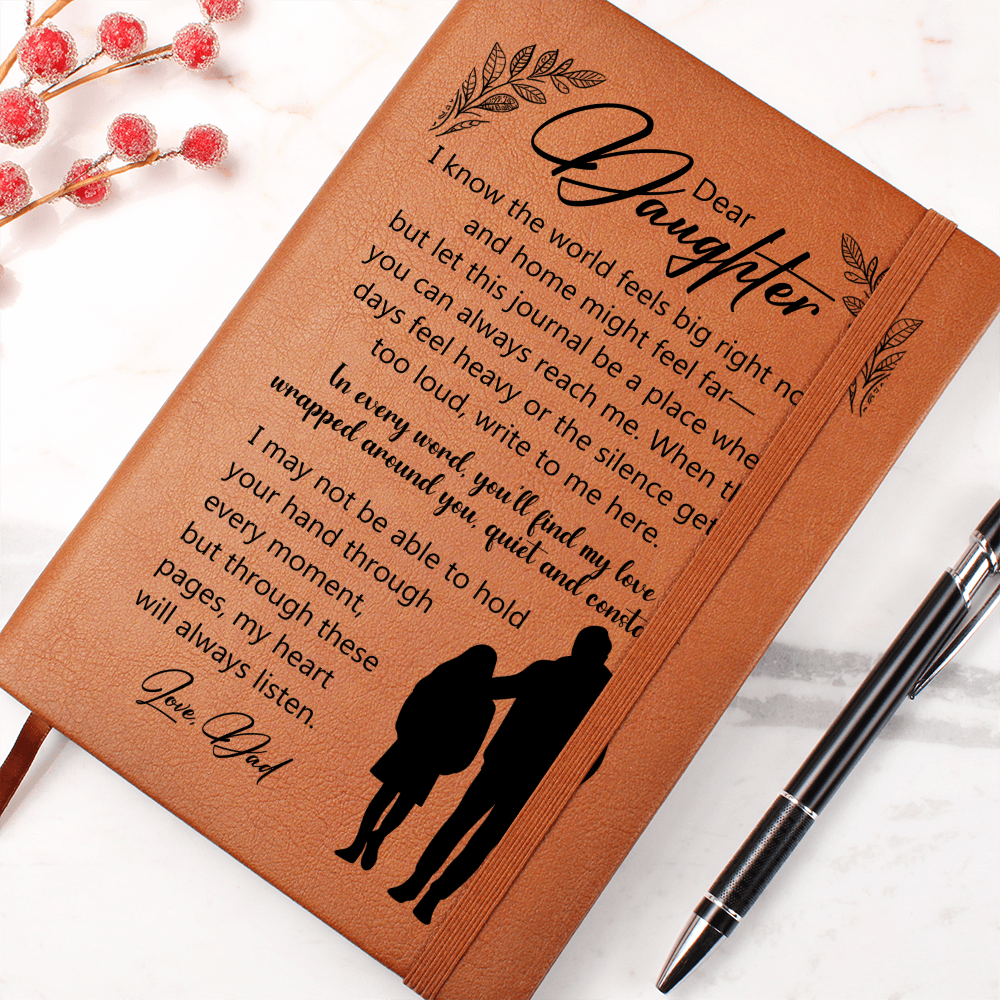 Dear
Daughter
I know the world feels big right no
and home might feel far—
but let this journal be a place whe
you can always reach me. When th
days feel heavy or the silence get
too loud, write to me here.
In every word, you'll find my love
wrapped around you, quiet and consta
I may not be able to hold
your hand through
every moment,
but through these
pages, my heart
will always listen.
Love, Dad